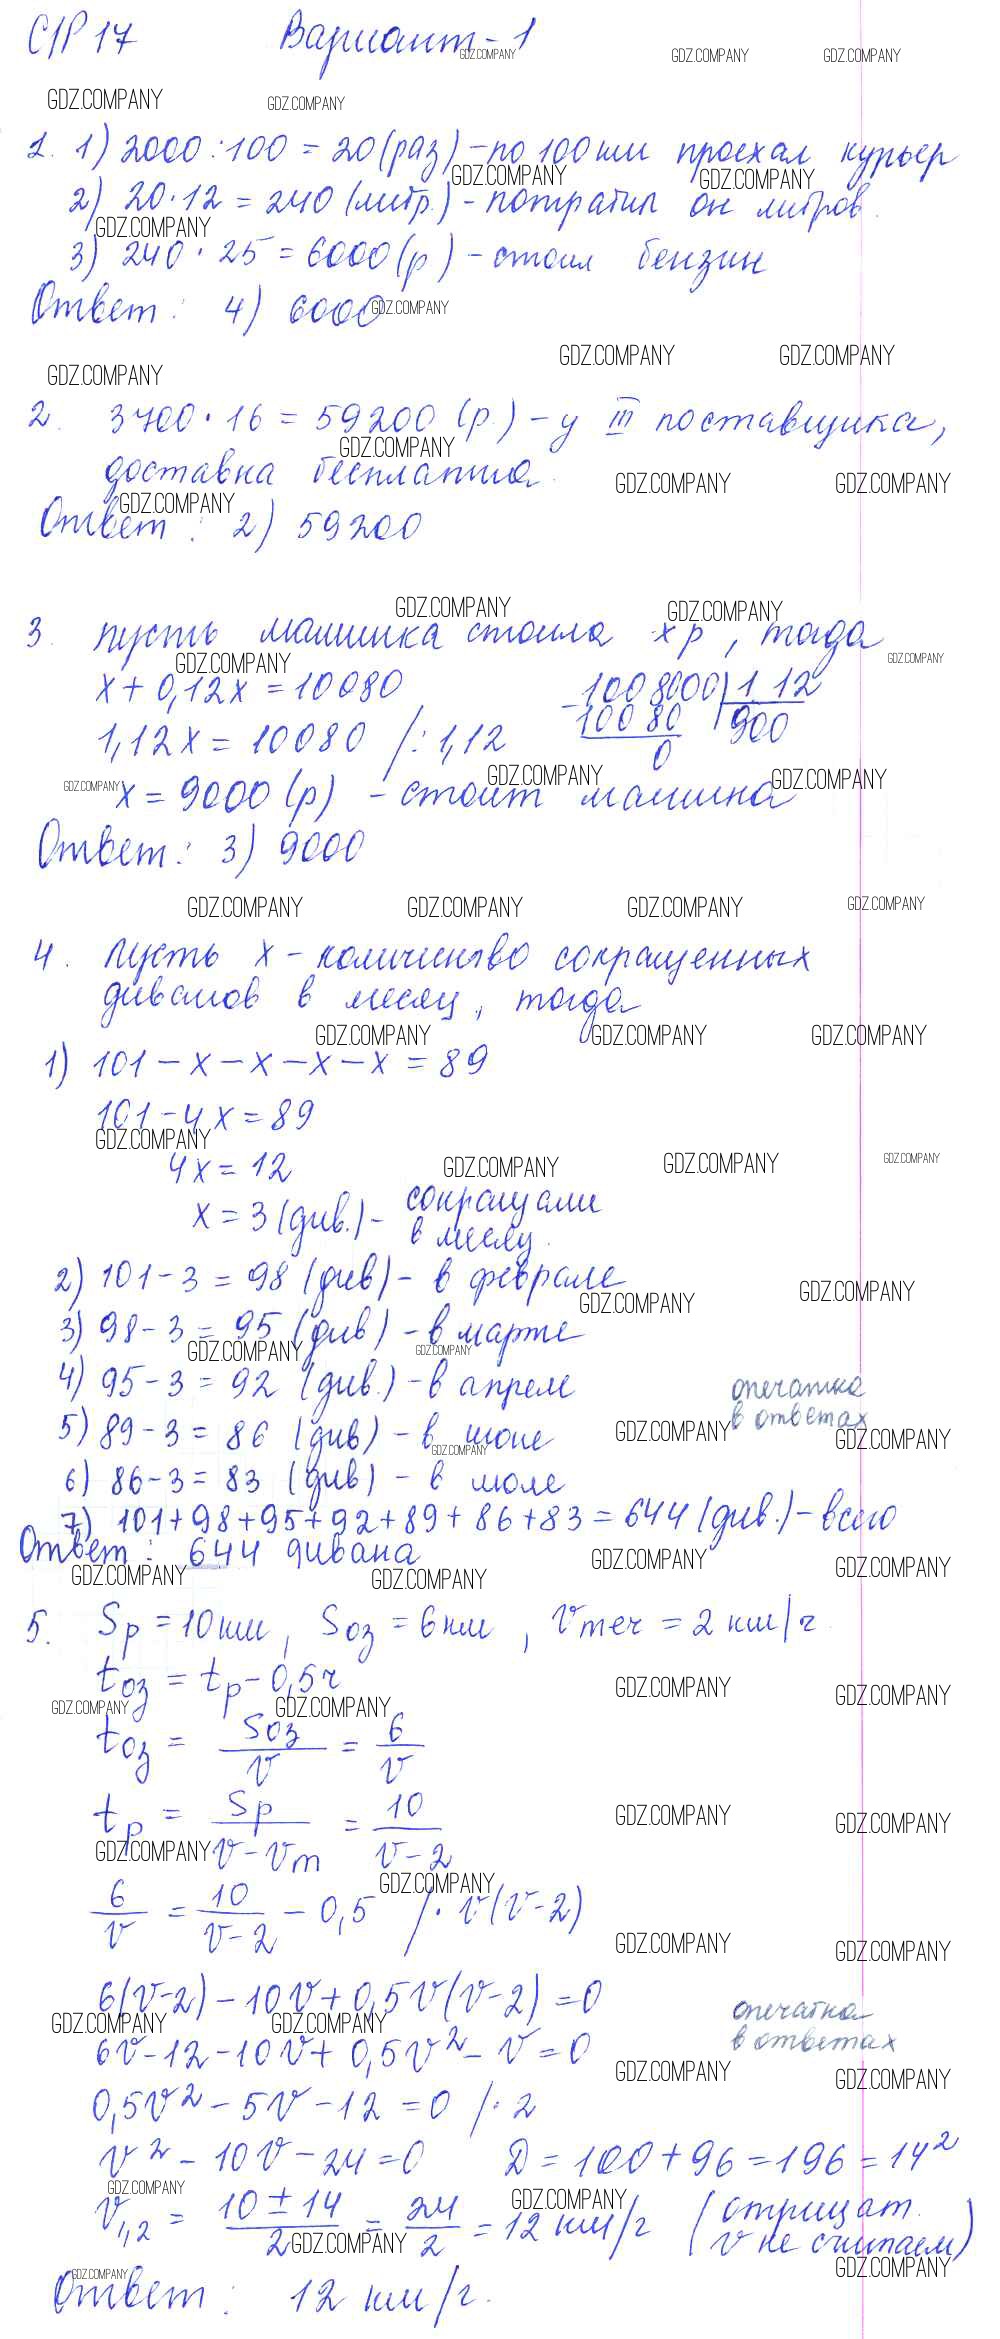 С/Р 17 Вариант-1
1. 1) 2000:100 = 20 (раз) - по 100 км проехал курьер
2) 20·12 = 240 (литр.) - потратил он литров.
3) 240·25 = 6000 (р) - стоил бензин
Ответ: 4) 6000
2. 3700·16 = 59200 (р.) - у III поставщика,
доставка бесплатна.
Ответ: 2) 59200
3. Пусть машинка стоила x р, тогда
x + 0,12x = 10080
1008000 | 1 12
1,12x = 10080 /:1,12
10080 900
0
x = 9000 (р) - стоит машина
Ответ: 3) 9000
4. Пусть x - количество сокращенных
диванов в месяц, тогда
1) 101 - x - x - x - x = 89
101 - 4x = 89
4x = 12
x = 3 (див.) - сокращали
в месяц.
2) 101 - 3 = 98 (див) - в феврале
3) 98 - 3 = 95 (див) - в марте
4) 95 - 3 = 92 (див.) - в апреле
опечатка
в ответах
5) 89 - 3 = 86 (див) - в июне
6) 86 - 3 = 83 (див) - в июле
7) 101 + 98 + 95 + 92 + 89 + 86 + 83 = 644 (див.) - всего
Ответ: 644 дивана
5. Sр = 10 км, Sоз = 6 км, vтеч = 2 км/ч.
tоз = tр - 0,5ч
tоз = Sоз/v = 6/v
tр = Sр/(v - vт) = 10/(v - 2)
6/v = 10/(v - 2) - 0,5 /· v(v - 2)
6(v - 2) - 10v + 0,5v(v - 2) = 0
опечатка
в ответах
6v - 12 - 10v + 0,5v² - v = 0
0,5v² - 5v - 12 = 0 /· 2
v² - 10v - 24 = 0 D = 100 + 96 = 196 = 14²
v1,2 = (10 ± 14)/2 = 24/2 = 12 км/ч (отрицат.
v не считаем)
Ответ: 12 км/ч.
GDZ.COMPANY